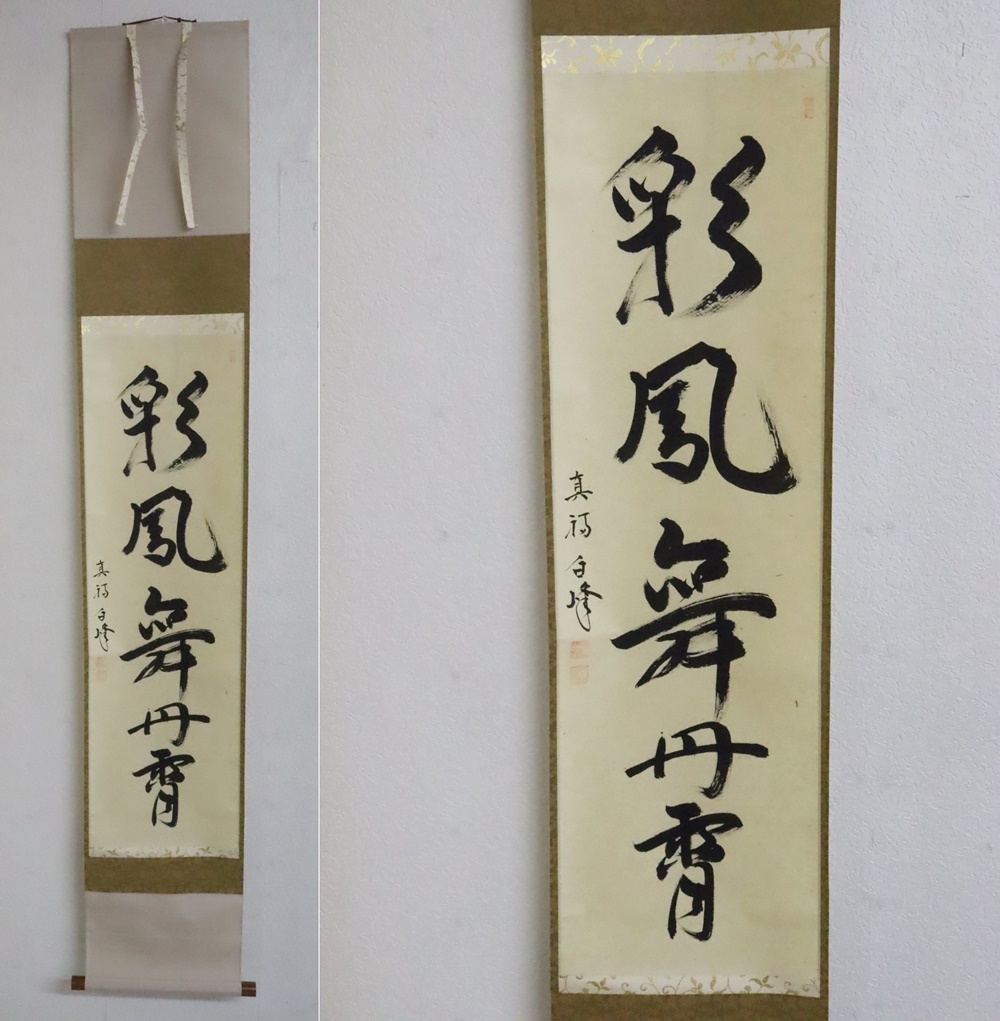 彩鳳舞丹霄
真福白峰
彩鳳舞丹霄
真福白峰